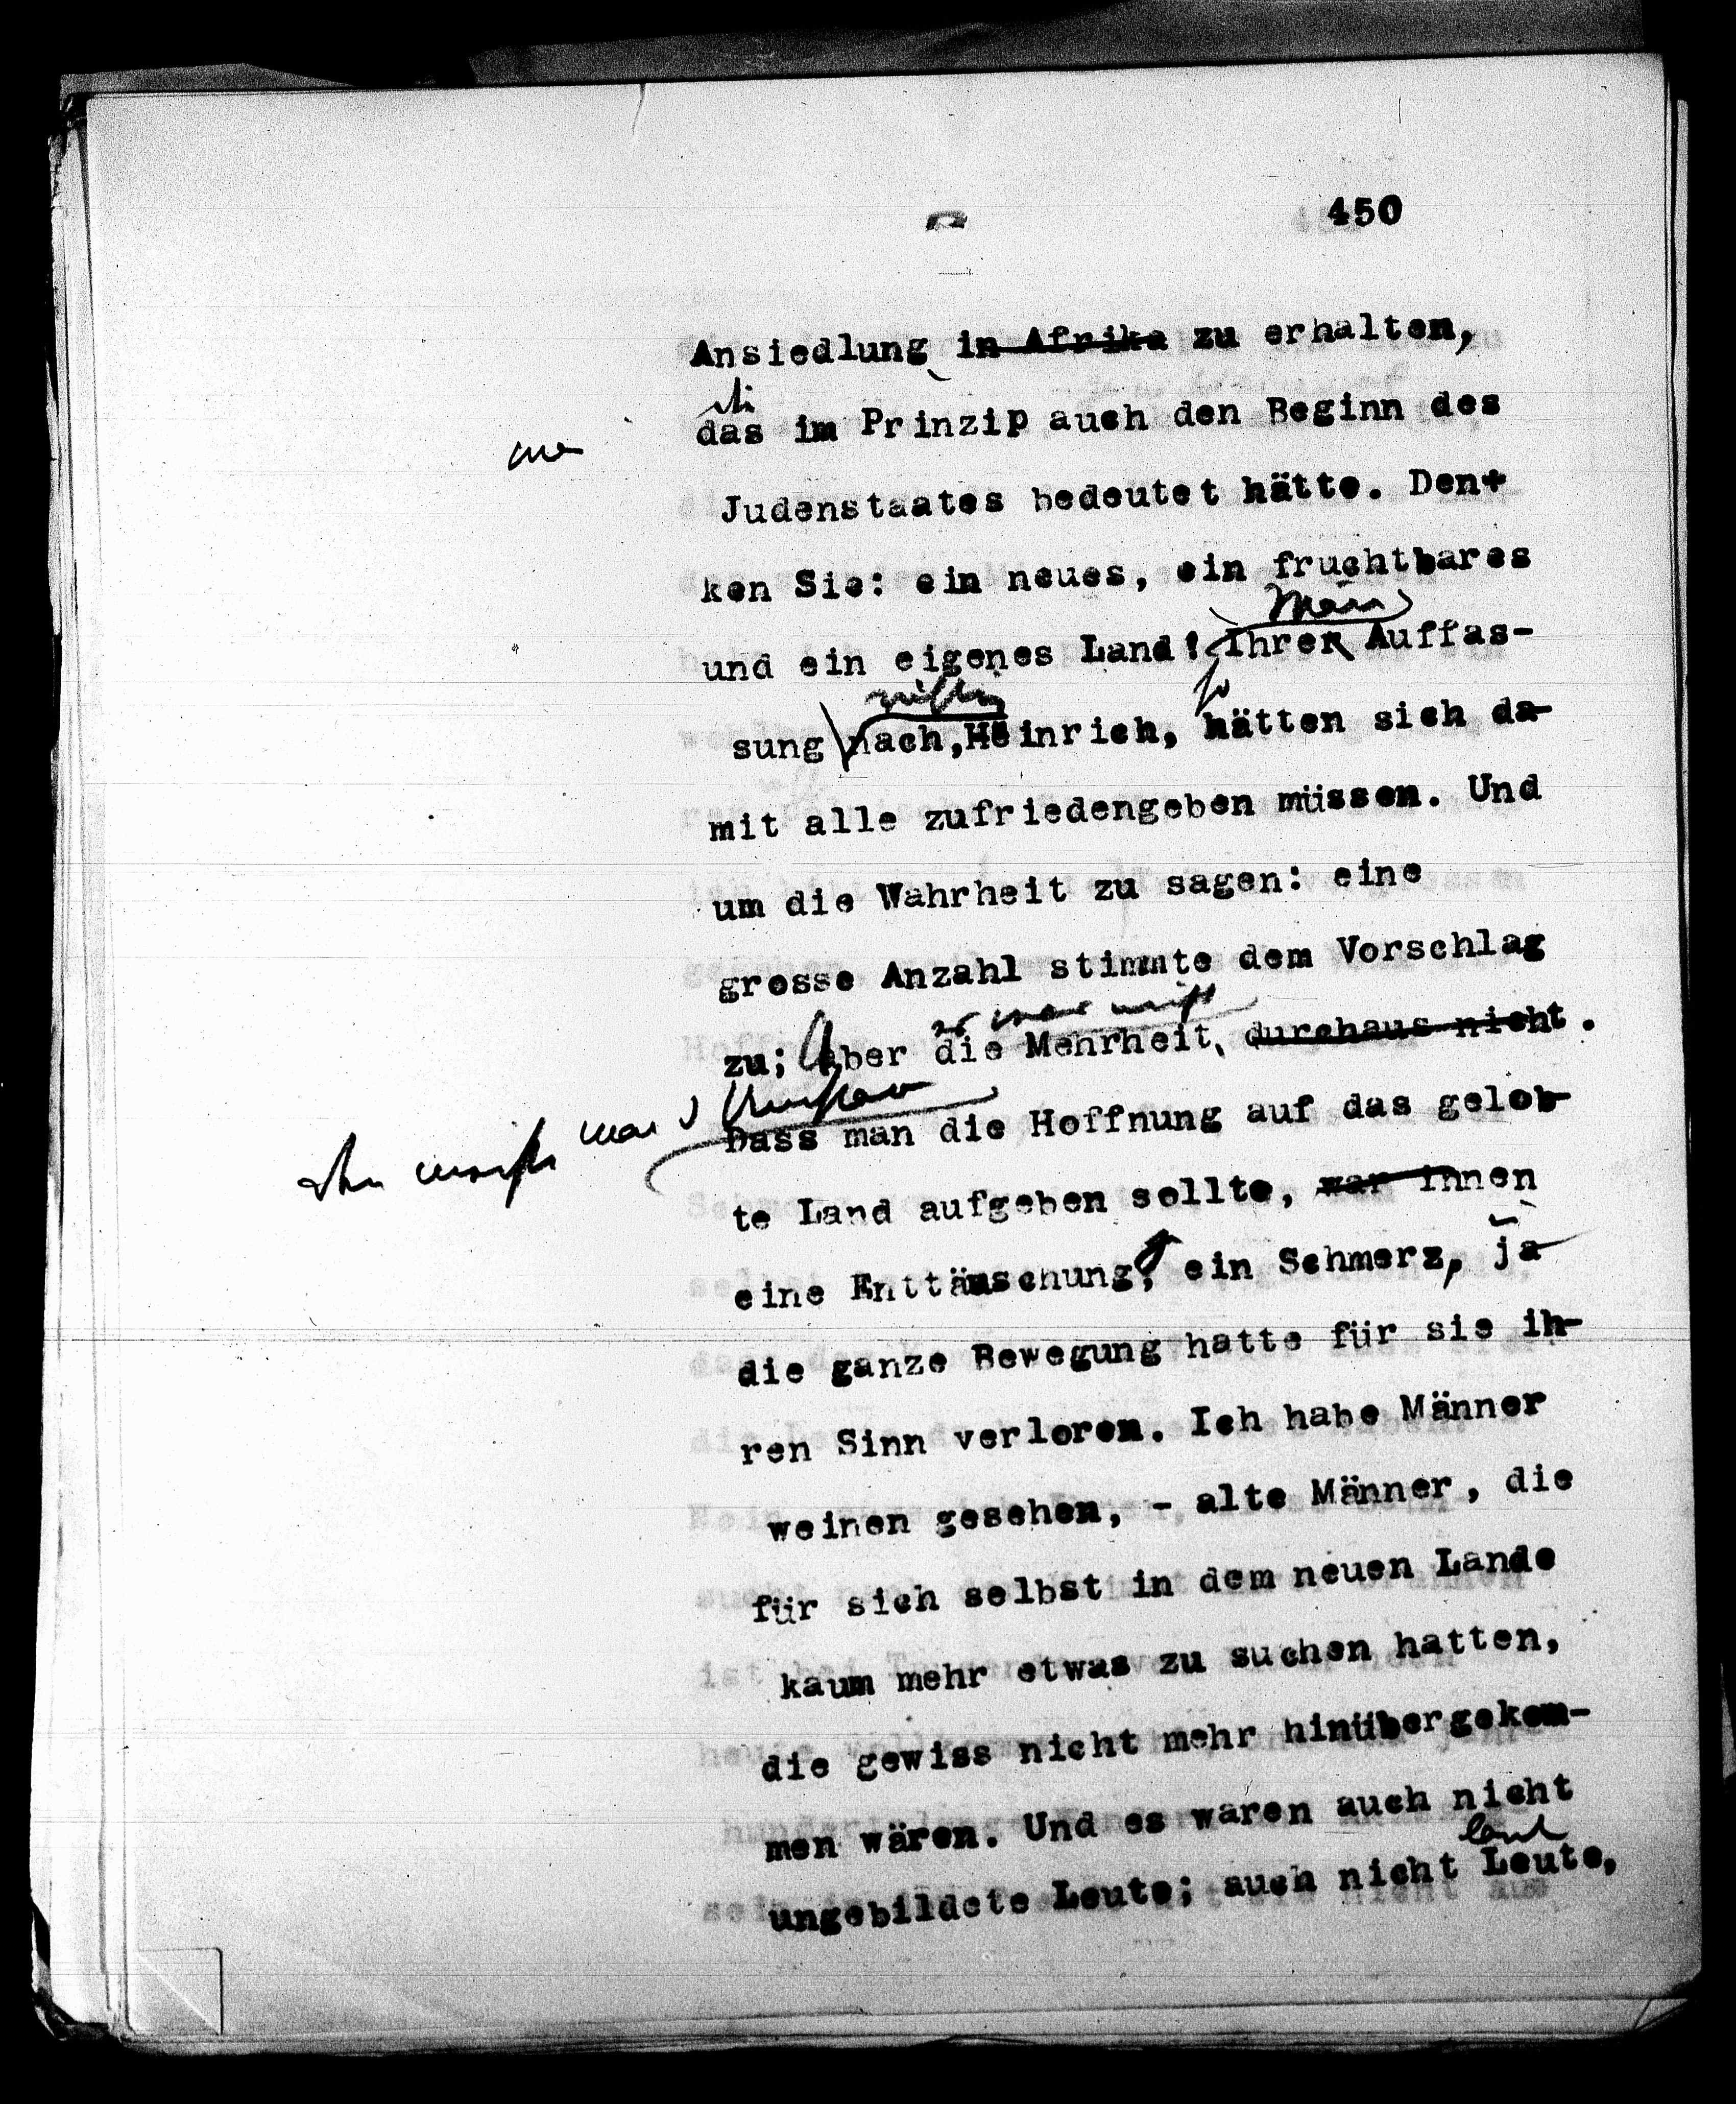 450
Ansiedlung in Afrika zu erhalten,
das im Prinzip auch den Beginn des
Judenstaates bedeutet hätte. Den+
ken Sie: ein neues, ein fruchtbares
und ein eigenes Land! Ihrer Auffas-
so
sung nach, Heinrich, hätten sich da-
mit alle zufriedengeben müssen. Und
um die Wahrheit zu sagen: eine
grosse Anzahl stimmte dem Vorschlag
zu; Aber die Mehrheit, durchaus nicht.
Dass man die Hoffnung auf das gelob-
te Land aufgeben sollte, war ihnen
eine Enttäuschung, ein Schmerz, ja
die ganze Bewegung hatte für sie ih-
ren Sinn verloren. Ich habe Männer
weinen gesehen, - alte Männer, die
für sich selbst in dem neuen Lande
kaum mehr etwas zu suchen hatten,
die gewiss nicht mehr hinübergekom-
men wären. Und es waren auch nicht
ungebildete Leute; auch nicht Leute,